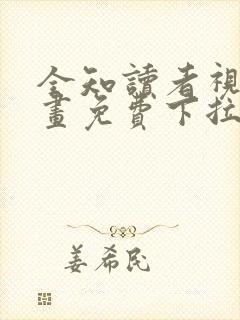 全知讀者視
畫免費下拉
姜希民